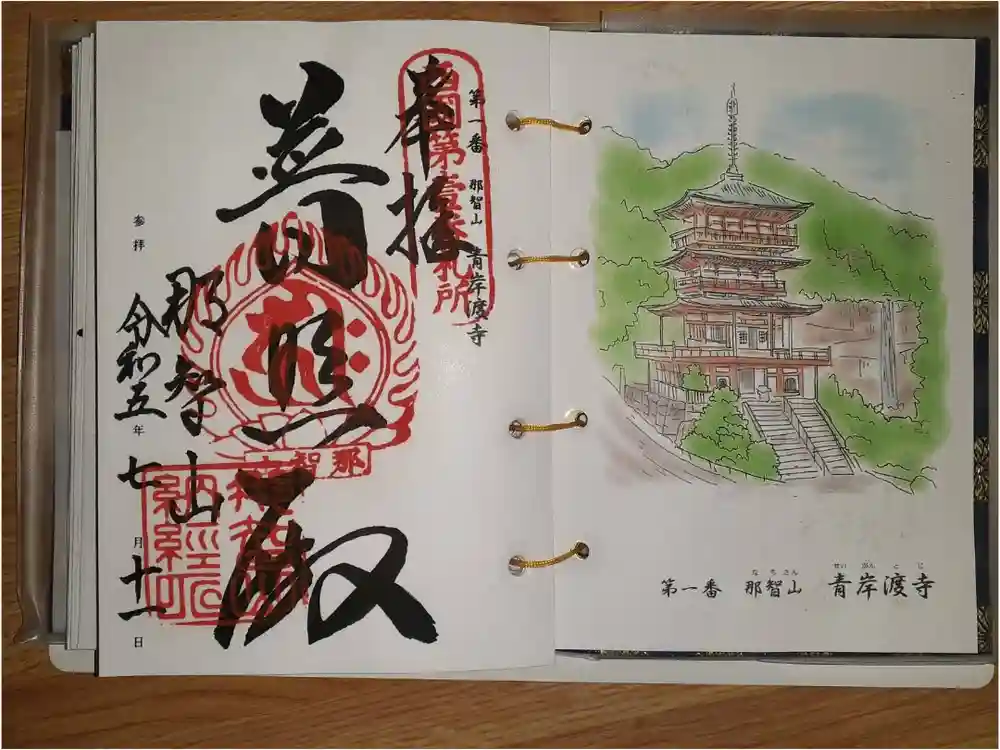 第一番 那智山 青岸渡寺
西国第壹番札所
奉拝
普照殿
那智山
那智山
参拝 令和五年七月十一日
なちさん せいがんとじ
第一番 那智山 青岸渡寺